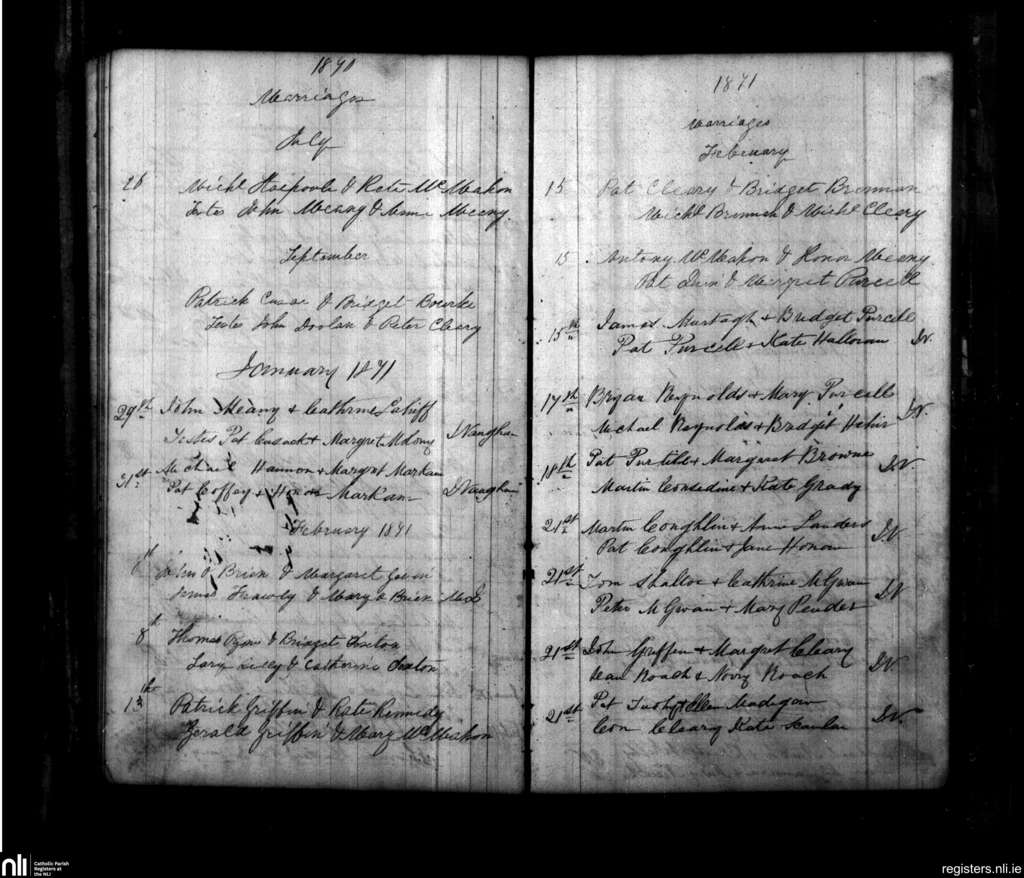 1870
Marriages
July
26 Michl & Kate McMahon
Testes John Meany & Anne Meany
September
Patrick & Bridget Bourke
Testes John Doolan & Peter Cleary
January 1871
29th John Meany & Cathrine Lahiff
Testes Pat Cusack & Margret DVaughan
31st Michael Hannon & Margret Markam
Pat Coffey & Honor Markam DVaughan
February 1871
8th John O Brien & Margaret
James Frawley & Mary O Brien
8th Thomas Ryan & Bridget Sexton
Kelly & Catherine Sexton
13th Patrick Griffin & Kate Kennedy
Gerald Griffin & Mary McMahon
1871
Marriages
February
15 Pat Cleary & Bridget Brennan
Michl Brennan & Michl Cleary
15 Antony McMahon & Honor Meany
Pat & Margret Purcell
15th James Murtagh & Bridget Purcell
Pat Purcell & Kate Halloran DV.
17th Bryan Reynolds & Mary Purcell
Michael Reynolds & Bridget DV.
18th Pat Purtill & Margaret Browne
Martin Considine & Kate Grady DV.
21st Martin Coughlin & Anne Landers
Pat Coughlin & Jane Honan DV
21st Tom & Cathrine McGwan
Peter McGwan & Mary Pender DV
21st John Griffen & Margret Cleary
Roach & Roach DV
21st Pat Tuohy & Ellen Madigan
Con Cleary Kate Scanlan DV.
nli
Catholic Parish
Registers at
the NLI
registers.nli.ie